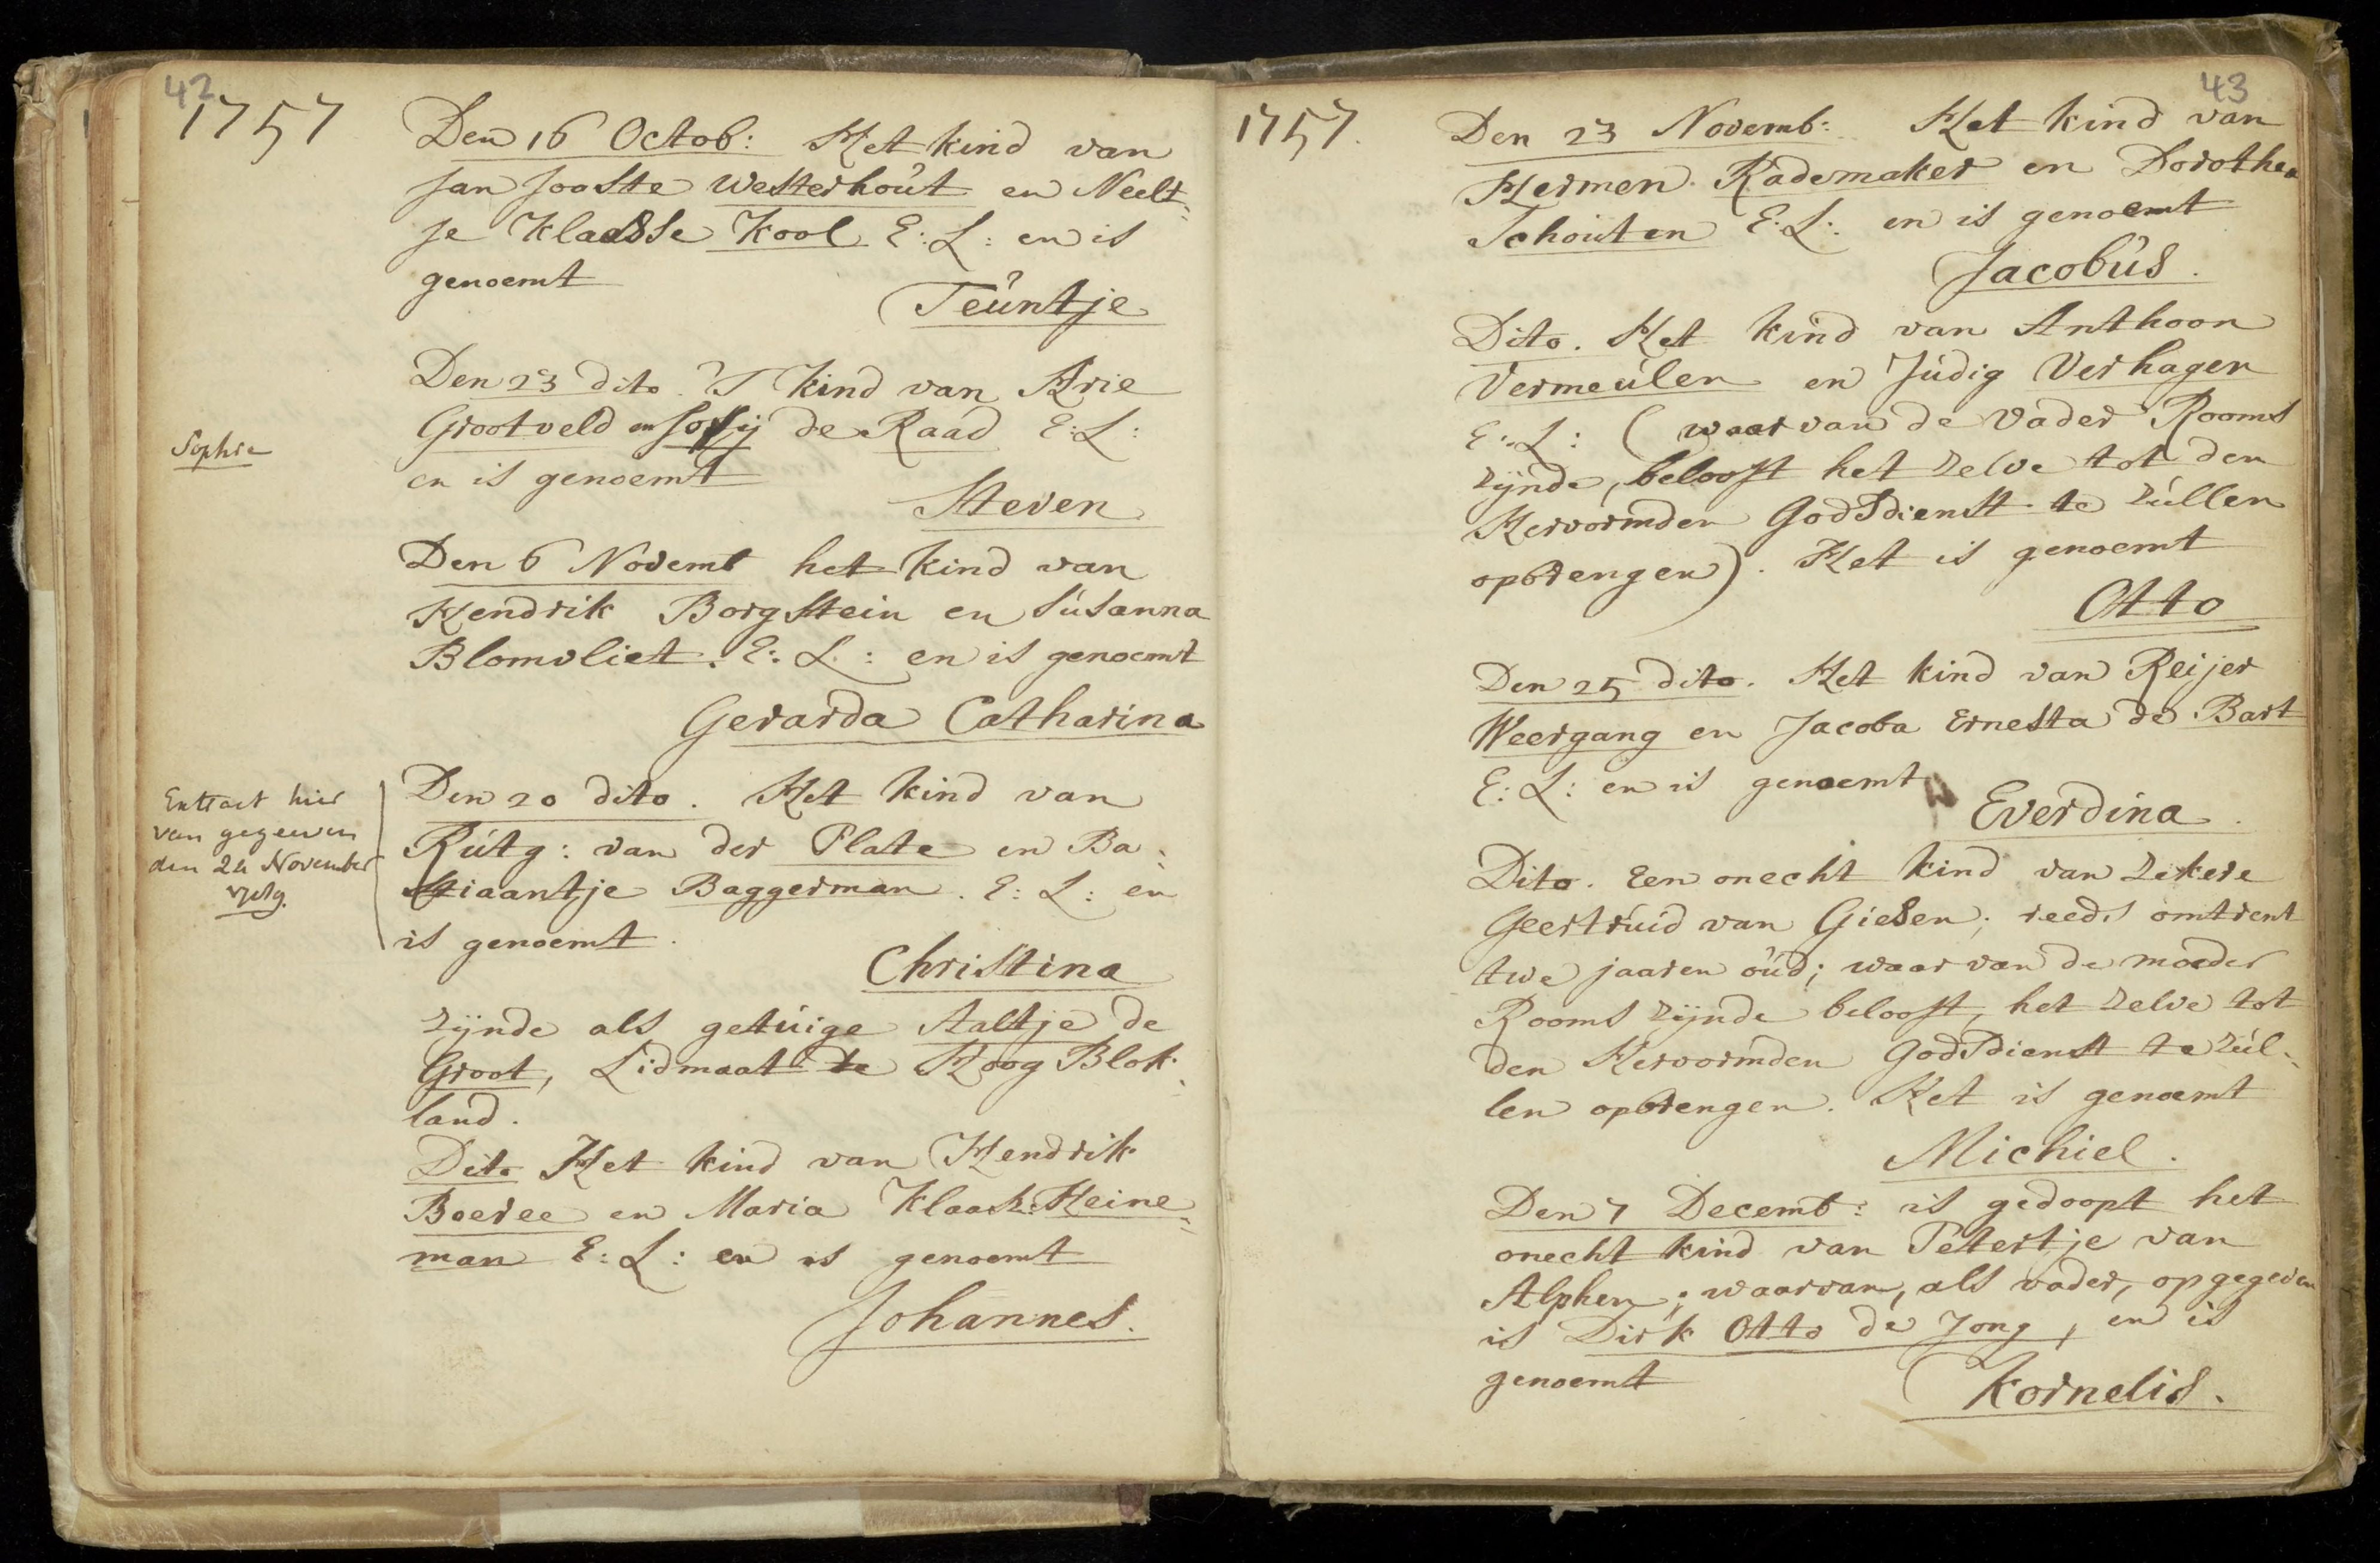 42
1757
Den 16 Octob: Het kind van
Jan Jooste Westerhoút en Neelt=
je Klaasse Kool E: L: en is
genoemt
Teúntje
Den 23 dito. 'T kind van Arie
Grootveld en Sofij de Raad E: L:
Sophia
en is genoemt
Steven
Den 6 Novemb het kind van
Hendrik Borgstein en Súsanna
Blomvliet. E: L: en is genoemt
Gerarda Catharina
Extract hier
van gegeven
den 24 November
Den 20 dito. Het kind van
Rútg: van der Plate en Ba=
stiaantje Baggerman. E: L: en
is genoemt.
Christina
zijnde als getúige Aaltje de
Groot, Lidmaat te Hoog Blok=
land.
Dito Het kind van Hendrik
Boeree en Maria Klaasz: Heine=
man E: L: en is genoemt
Johannes.
43
1757.
Den 23 Novemb: Het kind van
Hermen Rademaker en Dorothea
Schoúten E: L: en is genoemt
Jacobús.
Dito. Het kind van Anthoon
Vermeúlen en Júdig Verhagen
E: L: (waar van de Vader Rooms
zijnde, belooft het zelve tot den
Hervormden Godsdienst te zúllen
opbrengen). Het is genoemt
Otto
Den 25 dito. Het kind van Reijer
Weergang en Jacoba Ernesta de Bart
E: L: en is genoemt
Everdina.
Dito. Een onecht kind van zekere
Geertrúid van Giesen; reeds omtrent
twe jaaren oúd; waar van de moeder
Rooms zijnde belooft, het zelve tot
den Hervormden Godsdienst te zúl=
len opbrengen. Het is genoemt
Michiel.
Den 7 Decemb: is gedoopt het
onecht kind van Petertje van
Alphen; waarvan, als vader, opgegeven
is Dirk Otto de Jong, en is
genoemt
Kornelis.